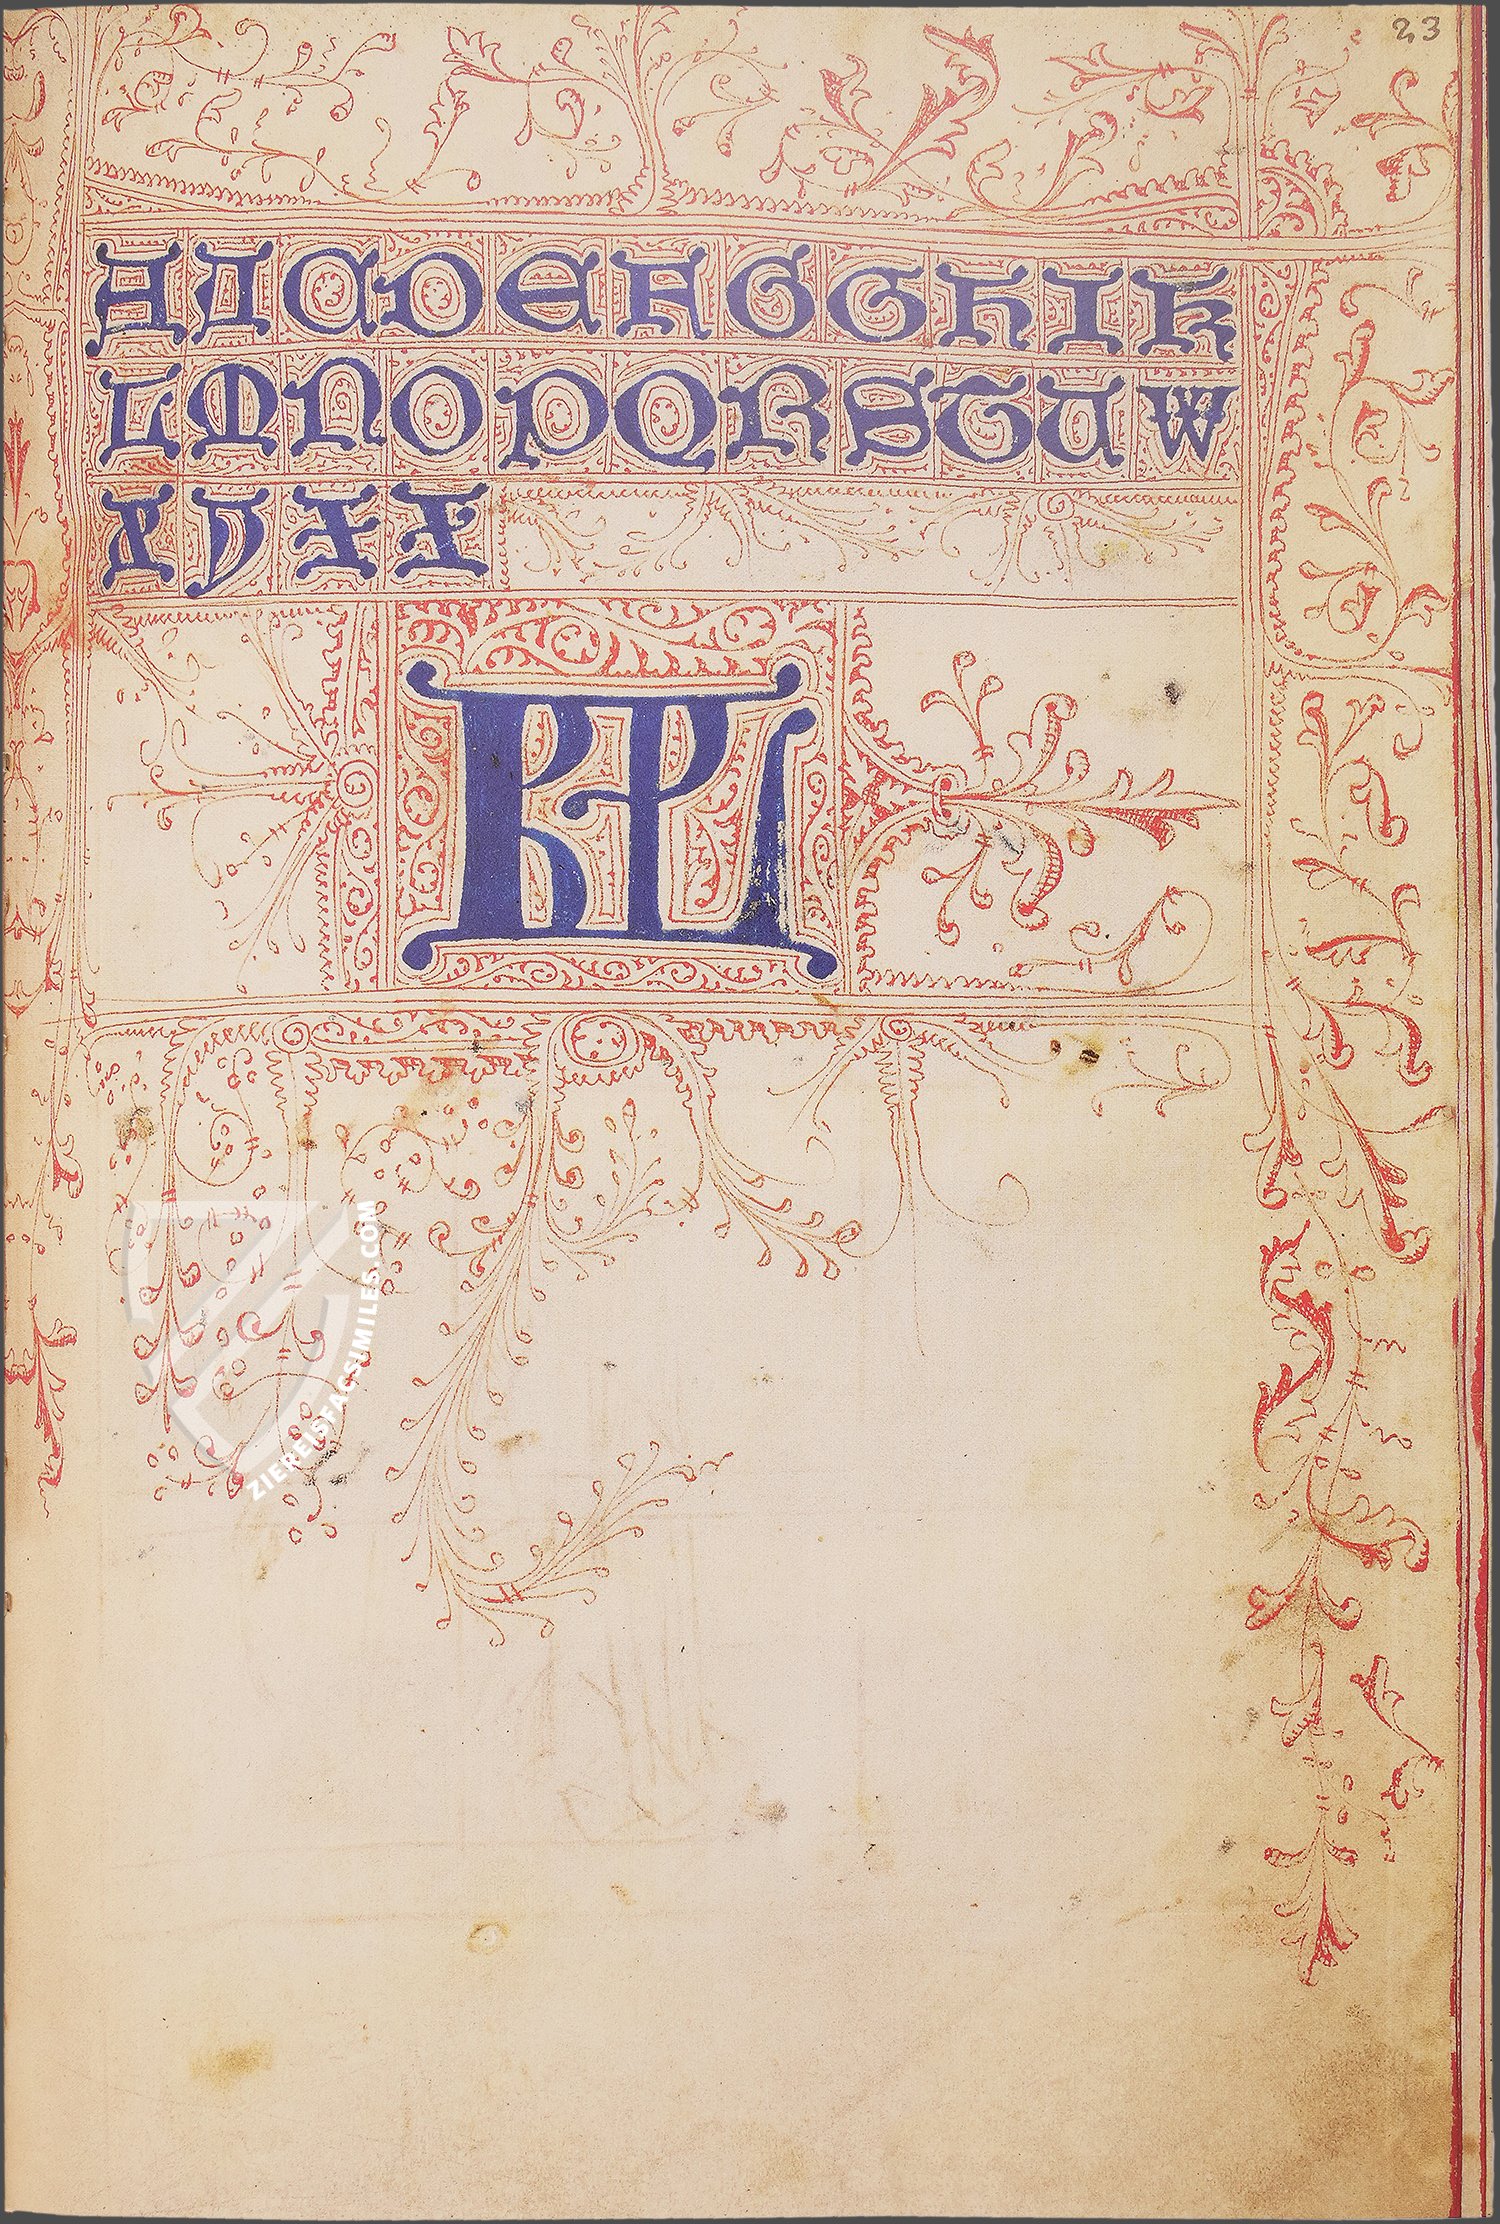 23
A A C D E F G G H I K
L M N O P Q R S T U W
X Y Z Z
ZIEREISFACSIMILES.COM